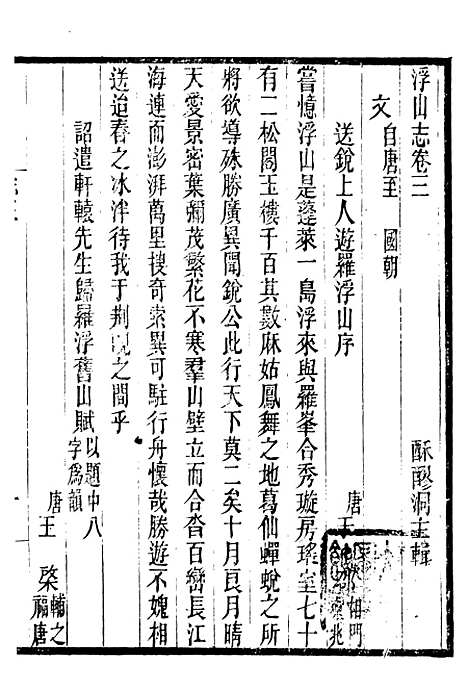 浮山志卷三 酥醪洞主輯
文 自唐至 國朝
送銳上人遊羅浮山序 唐王
嘗憶浮山是蓬萊一島浮來與羅峯合秀璇房瑤室七十
有二松閣玉樓千百其數麻姑鳳舞之地葛仙蟬蛻之所
將欲導殊勝廣異聞銳公此行天下莫二矣十月良月晴
天愛景密葉彌茂繁花不寒羣山壁立而合沓百巒長江
海連而澎湃萬里搜奇索異可駐行舟懷哉勝遊不媿相
送迨春之冰泮待我于荆之間乎
詔遣軒轅先生歸羅浮舊山賦 以題中八字為韻 唐王棨 輔之福唐